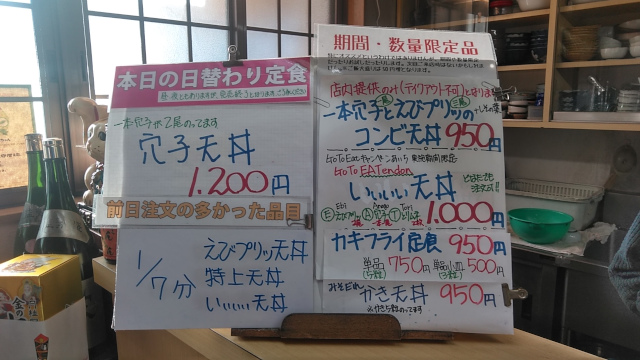 本日の日替わり定食
一本穴子が2尾のってます
穴子天丼
1,200円
前日注文の多かった品目
1/7分
えびプリッ天丼
特上天丼
いいぃぃ天丼
期間・数量限定品
店内提供のみ(テイクアウト不可)となります
一本穴子とえびプリッの
コンビ天丼 950円
Go To Eatキャンペーンあいち
Go To EATendon
いいぃぃ天丼
1,000円
Ebi Anago Tori
カキフライ定食 950円
単品 750円 単品小皿 500円
みそだれ かき天丼 950円